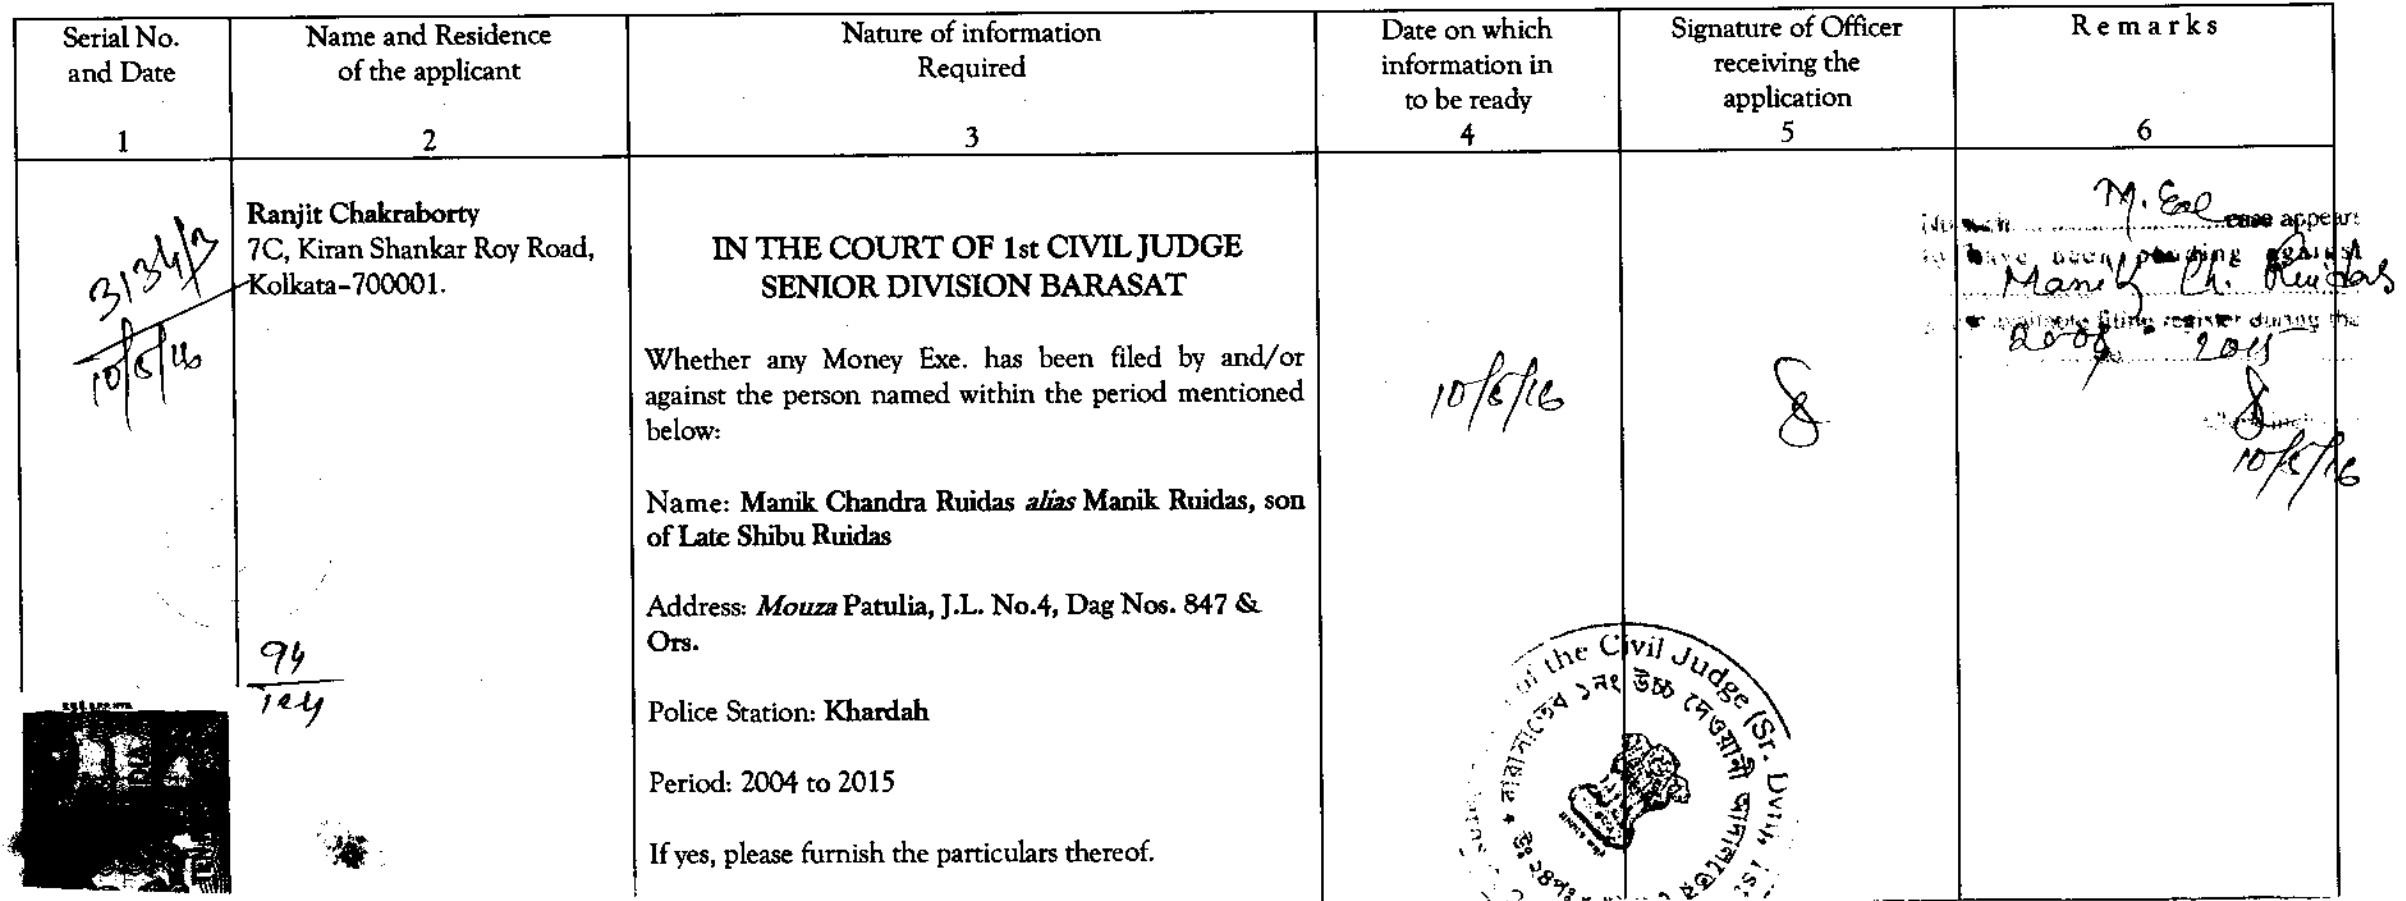 Serial No.
and Date
1
Name and Residence
of the applicant
2
Nature of information
Required
3
Date on which
information in
to be ready
4
Signature of Officer
receiving the
application
5
Remarks
6
3134/3
10/5/16
Ranjit Chakraborty
7C, Kiran Shankar Roy Road,
Kolkata-700001.
94
IN THE COURT OF 1st CIVIL JUDGE
SENIOR DIVISION BARASAT
Whether any Money Exe. has been filed by and/or
against the person named within the period mentioned
below:
Name: Manik Chandra Ruidas alias Manik Ruidas, son
of Late Shibu Ruidas
Address: Mouza Patulia, J.L. No.4, Dag Nos. 847 &
Ors.
Police Station: Khardah
Period: 2004 to 2015
If yes, please furnish the particulars thereof.
10/5/16
of the Civil Judge (Sr. Dvn), 1st
১নং উচ্চ দেওয়ানী আদালতের
M. Exe case appears
have been pending against
Manik Ch. Ruidas
available filing register during the
2015
10/5/16